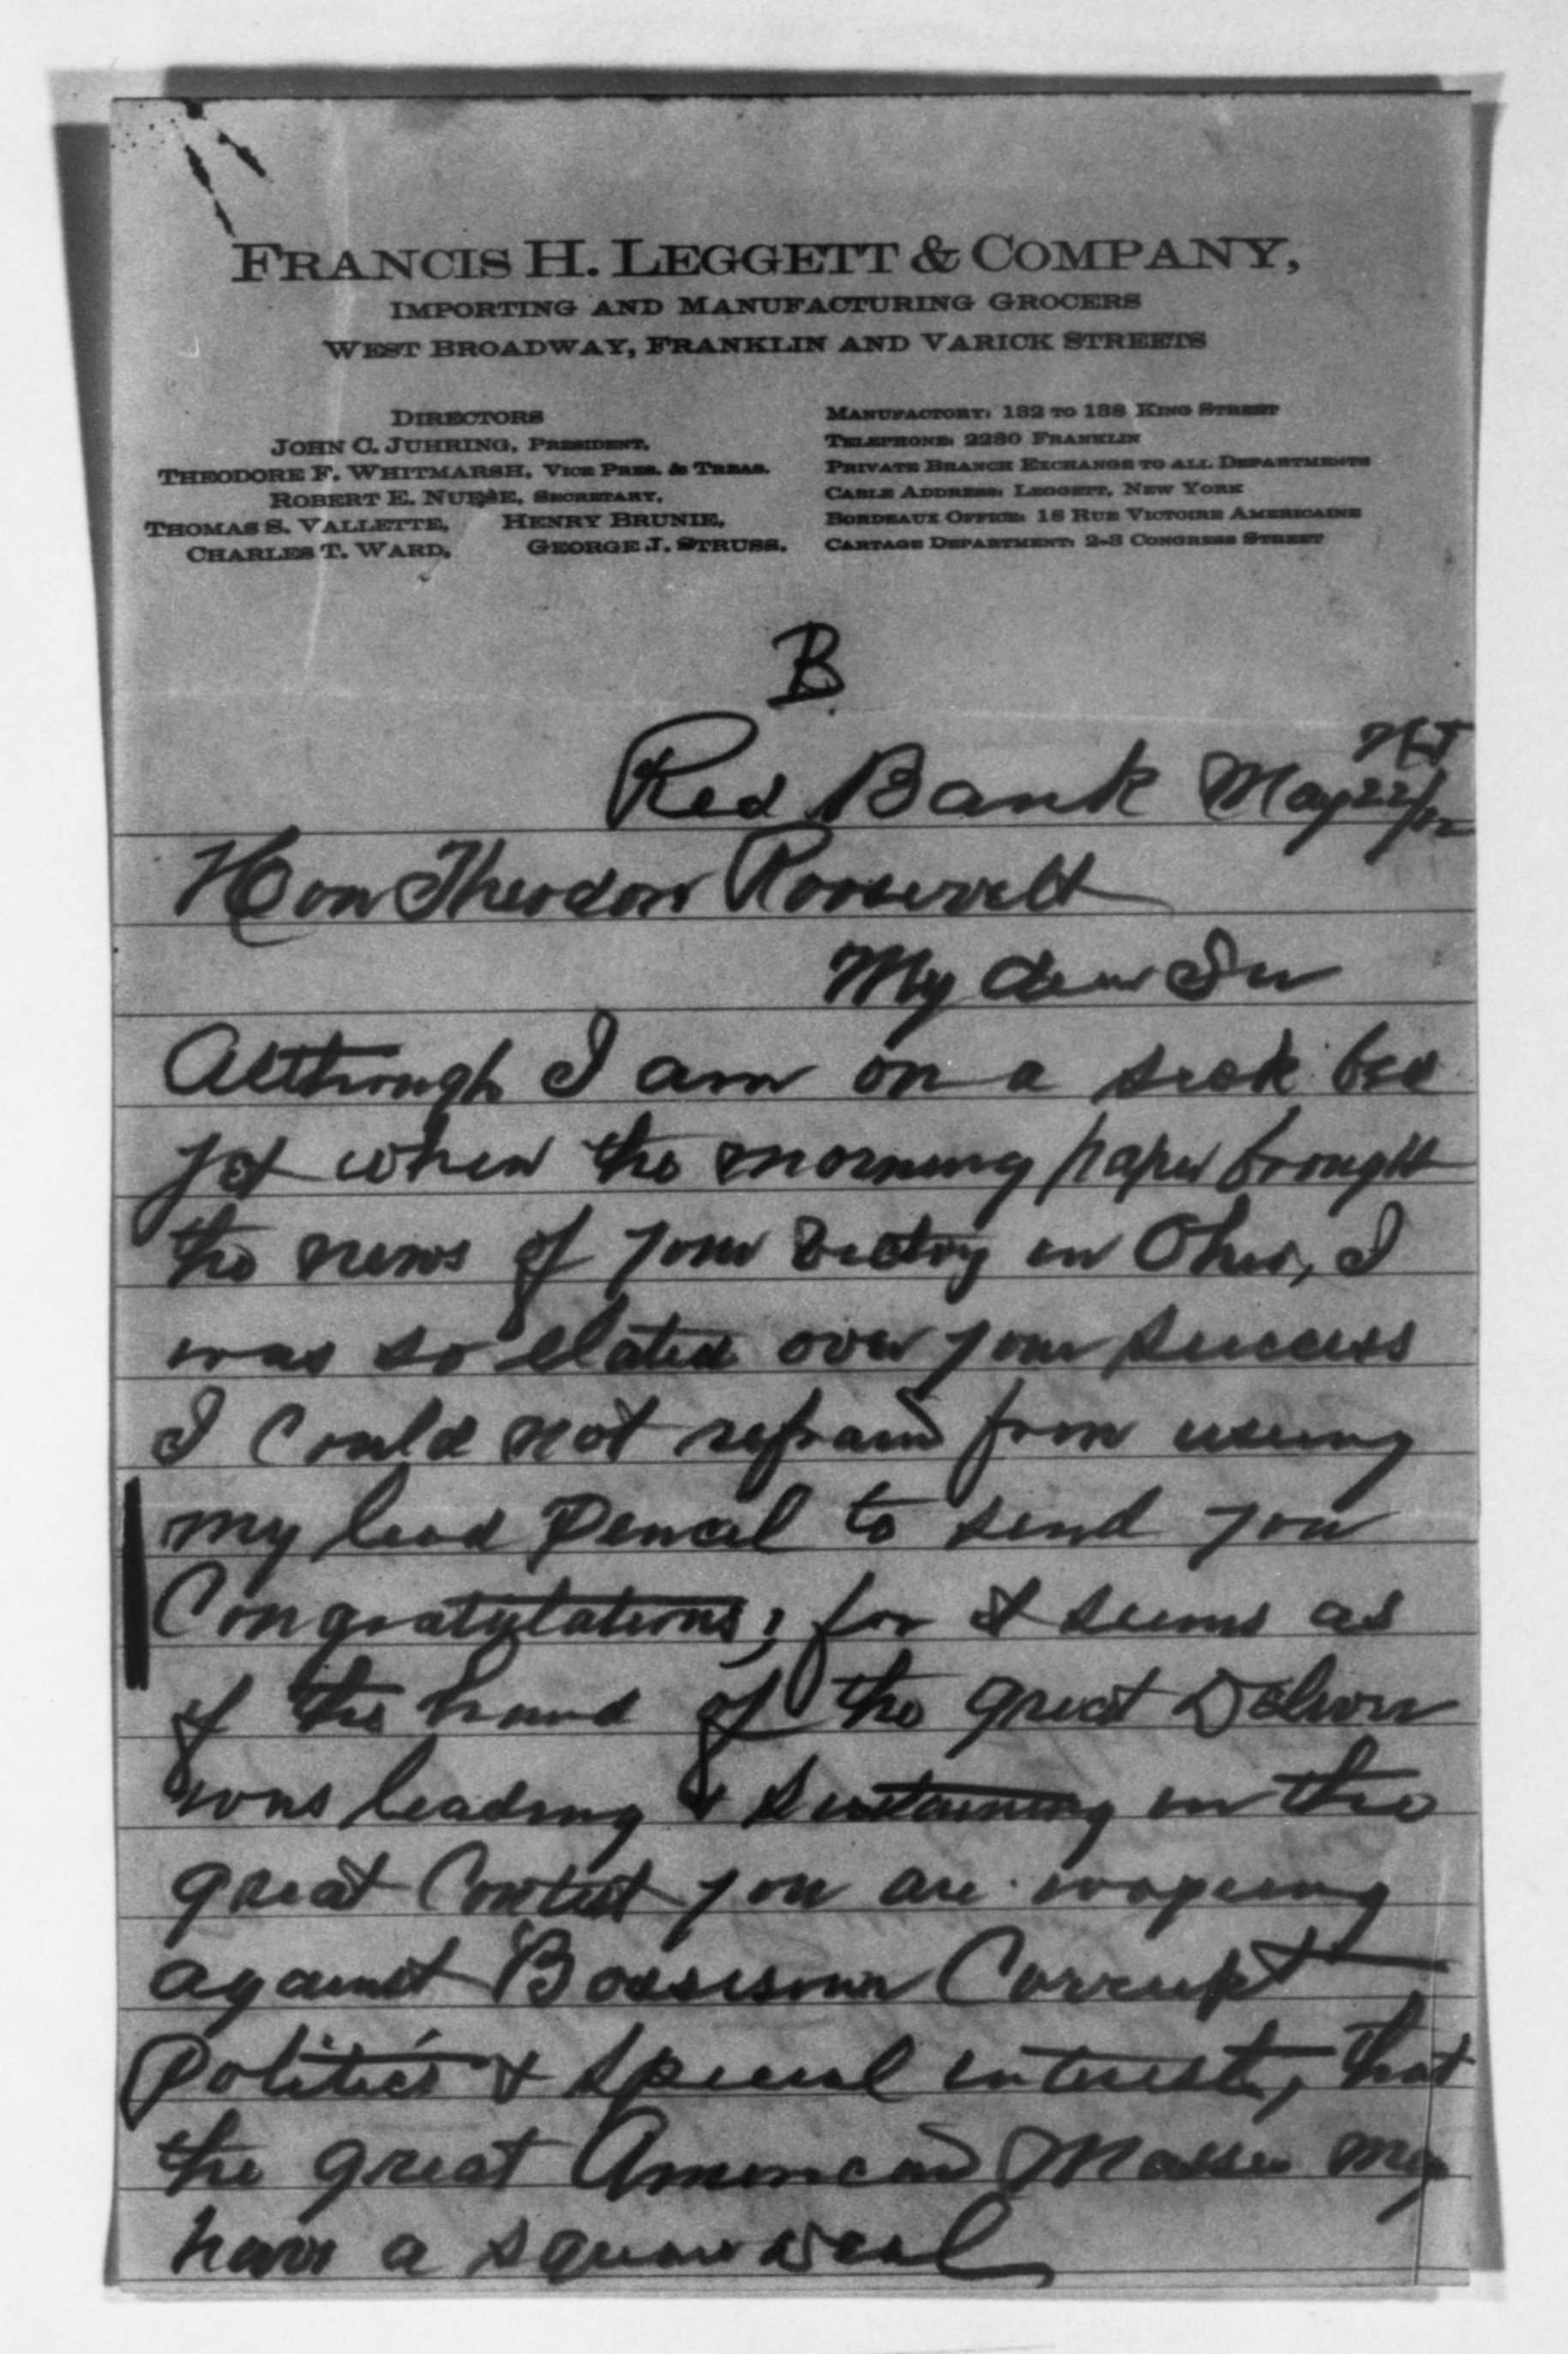 FRANCIS H. LEGGETT & COMPANY,
IMPORTING AND MANUFACTURING GROCERS
WEST BROADWAY, FRANKLIN AND VARICK STREETS
DIRECTORS
JOHN C. JUHRING, PRESIDENT.
THEODORE F. WHITMARSH, VICE PRES. & TREAS.
ROBERT E. NUESE, SECRETARY.
THOMAS S. VALLETTE, HENRY BRUNIE,
CHARLES T. WARD, GEORGE J. STRUSS.
MANUFACTORY: 182 TO 188 KING STREET
TELEPHONE: 2280 FRANKLIN
PRIVATE BRANCH EXCHANGE TO ALL DEPARTMENTS
CABLE ADDRESS: LEGGETT, NEW YORK
BORDEAUX OFFICE: 18 RUE VICTOIRE AMERICAINE
CARTAGE DEPARTMENT: 2-3 CONGRESS STREET
B.
NJ
Red Bank May 22/12
Hon Theodore Roosevelt
My dear Sir
Although I am on a sick bed
yet when the morning paper brought
the news of your victory in Ohio, I
was so elated over your success
I could not refrain from using
my lead pencil to send you
Congratulations; for it seems as
if the hand of the great
was leading & sustaining in the
great Contest you are wageing
against Bossism Corrupt
Politics & special interests, that
the great American Masses may
have a square deal